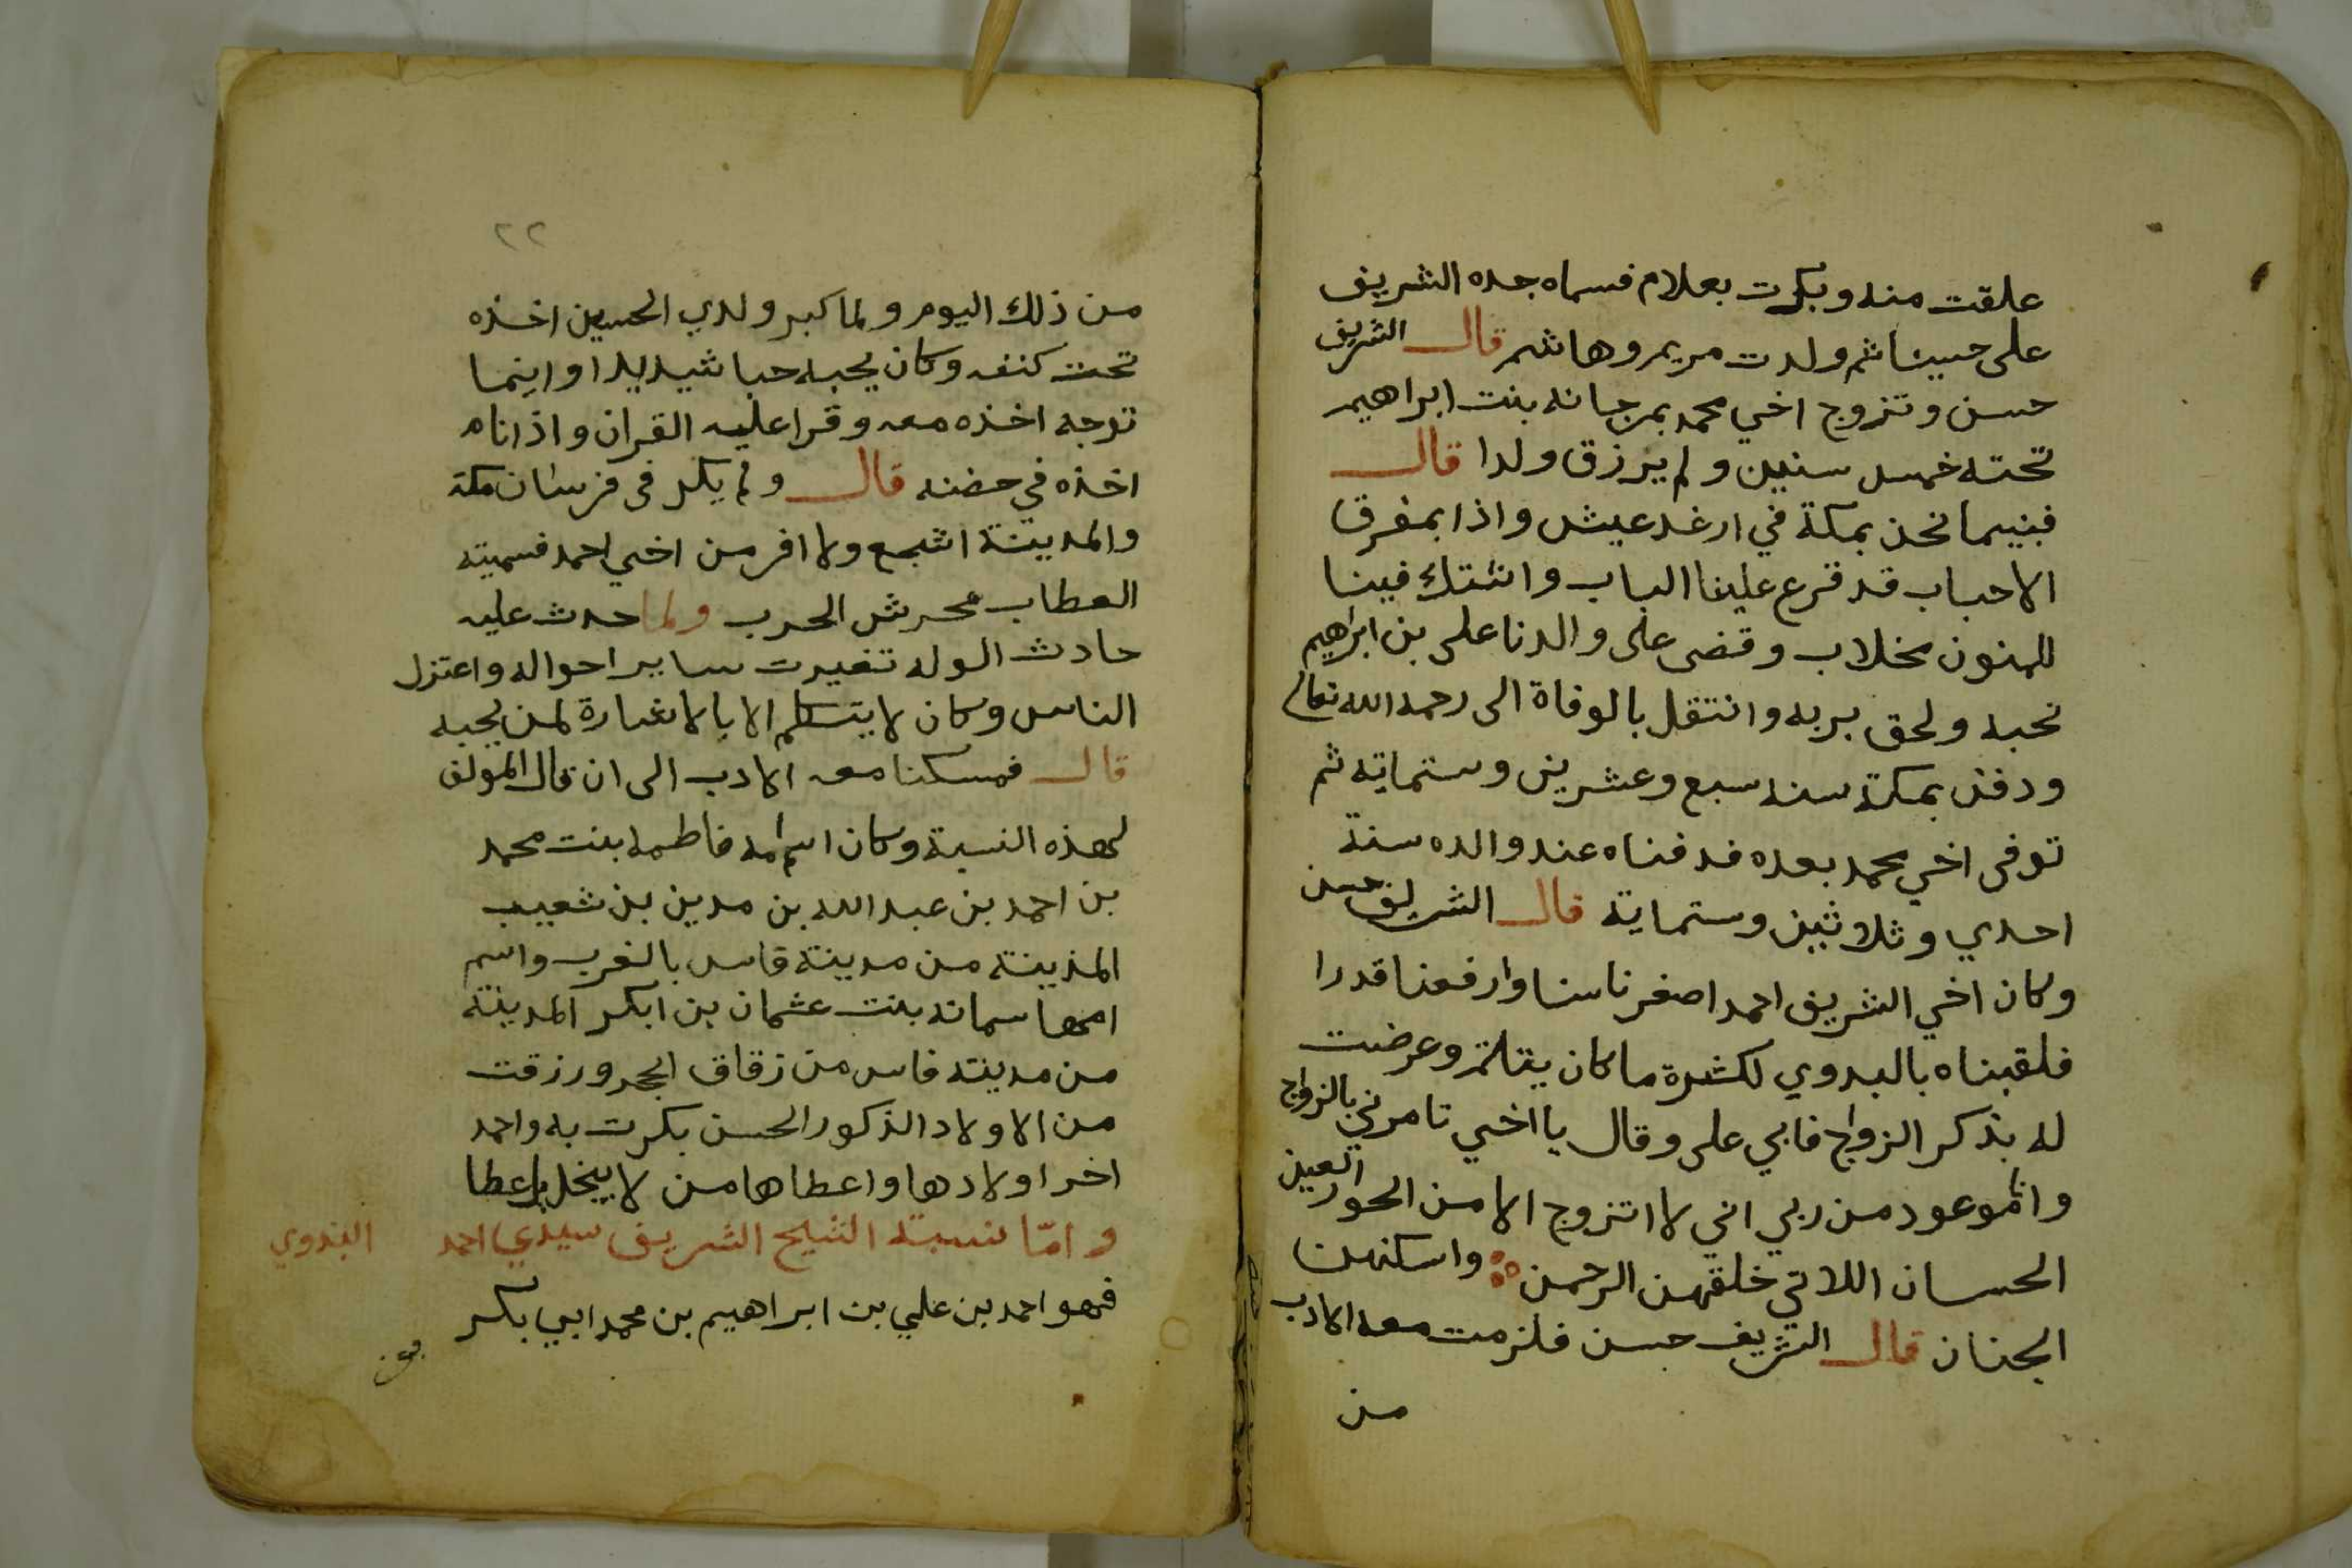 علقت منه وبكرت بعلام فسماه جده الشريف
على حسينا ثم ولدت مريم وهاشم قال الشريف
حسن وتزوج اخي محمد بمرجانه بنت ابراهيم
تحته خمس سنين ولم يرزق ولدا قال
فبنيما نحن بمكة في ارغد عيش واذا بمفرق
الاحباب قد قرع علينا الباب وانتتك فينا
للمنون مخلاب وقضى على والدنا على بن ابراهيم
نحبه ولحق بربه وانتقل بالوفاة الى رحمه الله تعالى
ودفن بمكة سنه سبع وعشرين وستمايته ثم
توفى اخي محمد بعده فدفناه عند والده سنة
احدي وثلاثين وستماية قال الشريف حسن
وكان اخي الشريف احمد اصغرنا سنا وارفعنا قدرا
فلقبناه بالبدوي لكثرة ما كان يتلثم وعرضت
له بذكر الزواج فابي على وقال يا اخي تامرني بالزواج
وانا موعود من ربي اني لا اتزوج الا من الحور العين
الحسان اللاتي خلقهن الرحمن واسكنهن
الجنان قال الشريف حسن فلزمت معه الادب
من
٢٢
من ذلك اليوم ولما كبر ولدي الحسين اخذه
تحت كنفه وكان يحبه حبا شديدا واينما
توجه اخذه معه وقرا عليه القران واذا نام
اخذه في حضنه قال ولم يكن في فرسان مكة
والمدينة اشجع ولا افر من اخي احمد فسميته
العطاب محرش الحرب ولما حدث عليه
حادث الوله تغيرت ساير احواله واعتزل
الناس وكان لا يتكلم الا بالاشارة لمن يحبه
قال فمسكنا معه الادب الى ان قال المولف
لهذه النسبة وكان اسم امه فاطمه بنت محمد
بن احمد بن عبد الله بن مدين بن شعيب
المذينة من مدينة قاس بالغرب واسم
امها سمانه بنت عثمان بن ابكر المدينة
من مدينته فاس من زقاق الحجر ورزقت
من الاولاد الذكور الحسن بكرت به واحمد
اخر اولادها واعطاها من لا يبخل بل عطا
وامّا نسبة الشيخ الشريف سيدي احمد البدوي
فهو احمد بن علي بن ابراهيم بن محمد ابي بكر